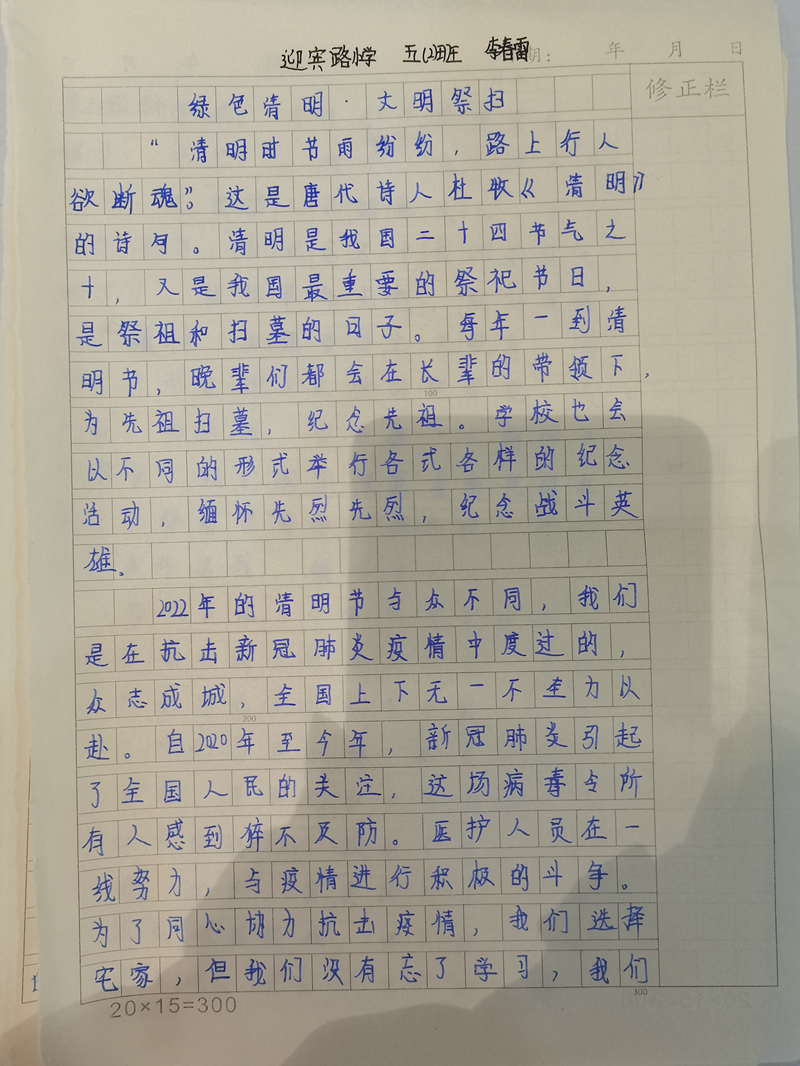 迎宾路小学 五(2)班 李春雷
期: 年 月 日
修正栏
绿色清明·文明祭扫
“清明时节雨纷纷，路上行人
欲断魂”。这是唐代诗人杜牧《清明》
的诗句。清明是我国二十四节气之
十，又是我国最重要的祭祀节日，
是祭祖和扫墓的日子。每年一到清
明节，晚辈们都会在长辈的带领下，
为先祖扫墓，纪念先祖。学校也会
以不同的形式举行各式各样的纪念
活动，缅怀先烈先烈，纪念战斗英
雄。
100
2022年的清明节与众不同，我们
是在抗击新冠肺炎疫情中度过的，
众志成城，全国上下无一不全力以
200
赴。自2020年至今年，新冠肺炎引起
了全国人民的关注，这场病毒令所
有人感到猝不及防。医护人员在一
线努力，与疫情进行积极的斗争。
为了同心协力抗击疫情，我们选择
宅家，但我们没有忘了学习，我们
300
20×15=300